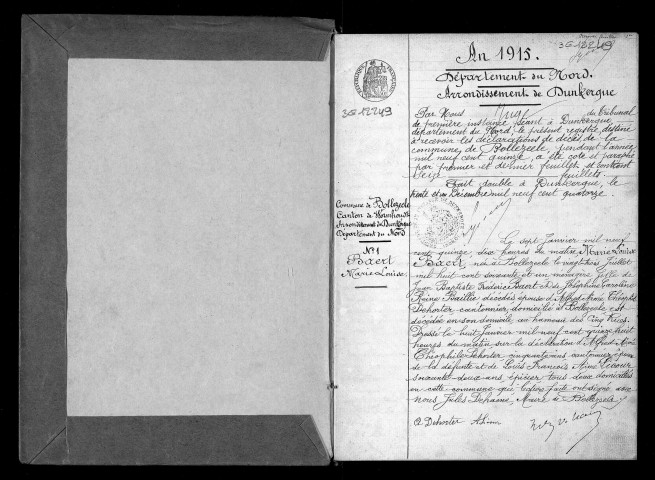 3G 12249
An 1915.
Département du Nord.
Arrondissement de Dunkerque
3G 12249
Par Nous Juge du tribunal
de première instance séant à Dunkerque,
département du Nord, le présent registre, destiné
à recevoir les déclarations de décès de la
commune de Bollezeele, pendant l'année
mil neuf cent quinze, a été coté et paraphé
par premier et dernier feuillet, et contient
seize feuillets.
Fait double à Dunkerque, le
trente et un Décembre mil neuf cent quatorze.
Commune de Bollezeele
Canton de Wormhoudt
Arrondissement de Dunkerque
Département du Nord
N° 1
Baert
Marie Louise.
Le sept Janvier mil neuf
cent quinze dix heures du matin, Marie Louise
Baert, née à Bollezeele le vingt trois Juillet
mil huit cent soixante et un ménagère fille de
Jean Baptiste Frédéric Baert et de Joséphine Caroline
Reine Baillie décédés épouse d'Alfred Aimé Théophile
Dehorter cantonnier, domiciliée à Bollezeele est
décédée en son domicile, au hameau des Cinq Rues.
Dressé le huit Janvier mil neuf cent quinze huit
heures du matin, sur la déclaration d'Alfred Aimé
Théophile Dehorter cinquante ans cantonnier époux
de la défunte et de Louis François Aimé
soixante deux ans, épicier tous deux domiciliés
en cette commune qui lecture faite ont signé avec
nous Jules Dehaene, Maire de Bollezeele
A Dehorter